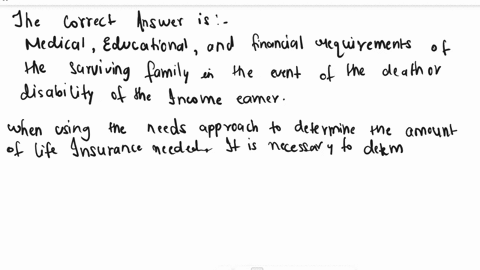 The correct Answer is:-
Medical, Educational, and financial requirements of
the surviving family in the event of the death or
disability of the Income earner.
when using the needs approach to determine the amount
of life Insurance needed. It is necessary to determ